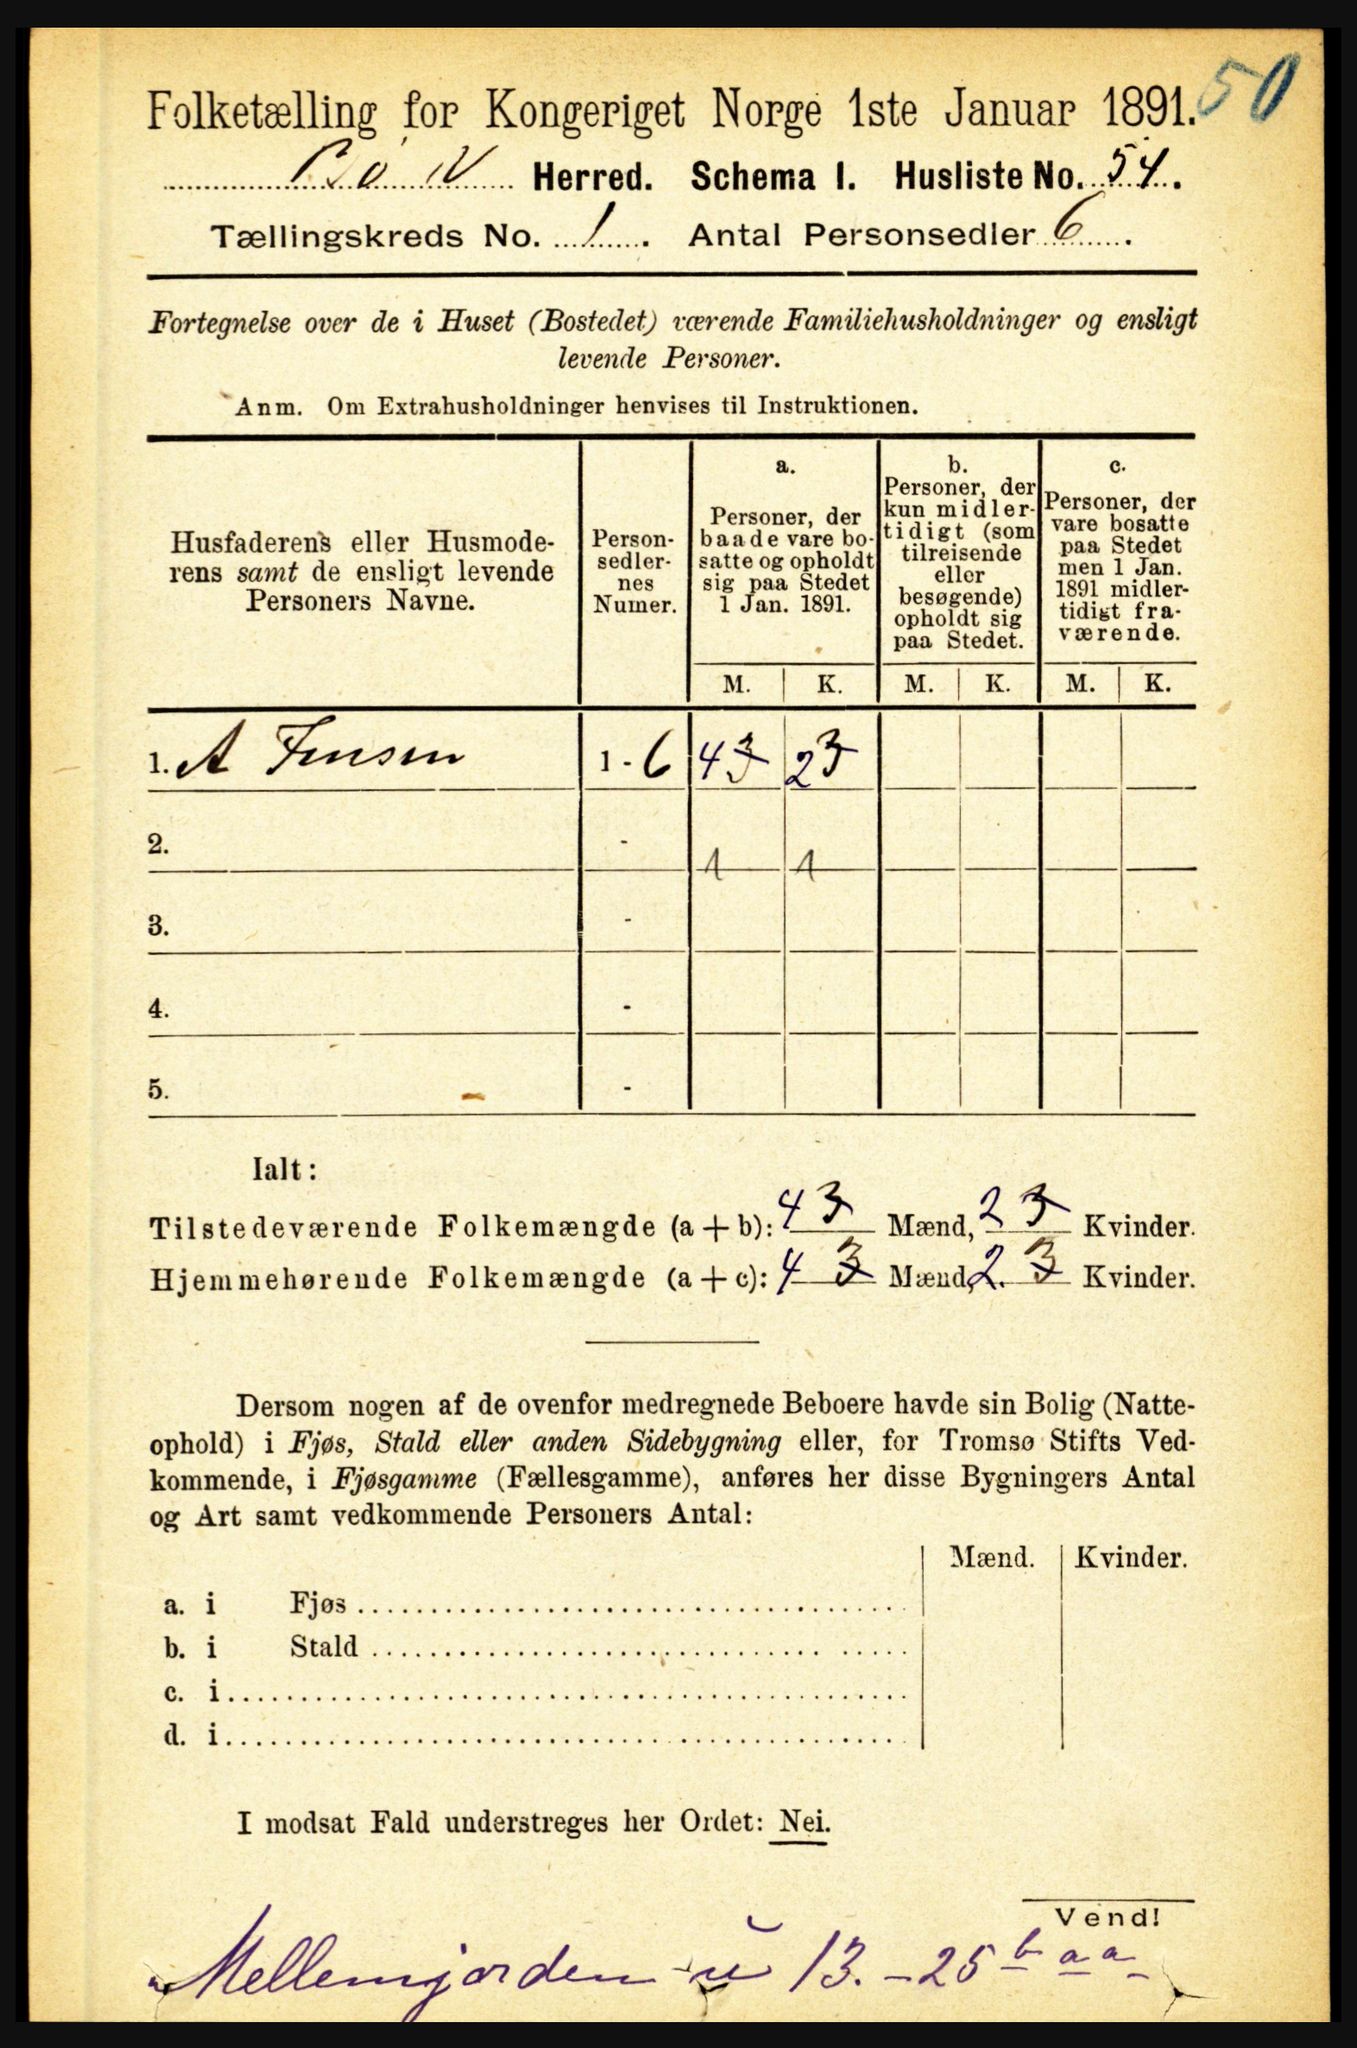 50
Folketælling for Kongeriget Norge 1ste Januar 1891.
Bø V Herred. Schema I. Husliste No. 54.
Tællingskreds No. 1. Antal Personsedler 6.
Fortegnelse over de i Huset (Bostedet) værende Familiehusholdninger og ensligt
levende Personer.
Anm. Om Extrahusholdninger henvises til Instruktionen.
Husfaderens eller Husmode-
rens samt de ensligt levende
Personers Navne.
Person-
sedler-
nes
Numer.
a.
Personer, der
baade vare bo-
satte og opholdt
sig paa Stedet
1 Jan. 1891.
b.
Personer, der
kun midler-
tidigt (som
tilreisende
eller
besøgende)
opholdt sig
paa Stedet.
c.
Personer, der
vare bosatte
paa Stedet
men 1 Jan.
1891 midler-
tidigt fra-
værende.
M. K. M. K. M. K.
1. A Jensen 1 - 6 4 3 2 3
2. -
1 1
3. -
4. -
5. -
Ialt:
Tilstedeværende Folkemængde (a + b): 4 3 Mænd, 2 3 Kvinder.
Hjemmehørende Folkemængde (a + c): 4 3 Mænd, 2 3 Kvinder.
Dersom nogen af de ovenfor medregnede Beboere havde sin Bolig (Natte-
ophold) i Fjøs, Stald eller anden Sidebygning eller, for Tromsø Stifts Ved-
kommende, i Fjøsgamme (Fællesgamme), anføres her disse Bygningers Antal
og Art samt vedkommende Personers Antal:
Mænd. Kvinder.
a. i Fjøs
b. i Stald
c. i
d. i
I modsat Fald understreges her Ordet: Nei.
Vend!
Mellemjorden u 13. - 25 b aa